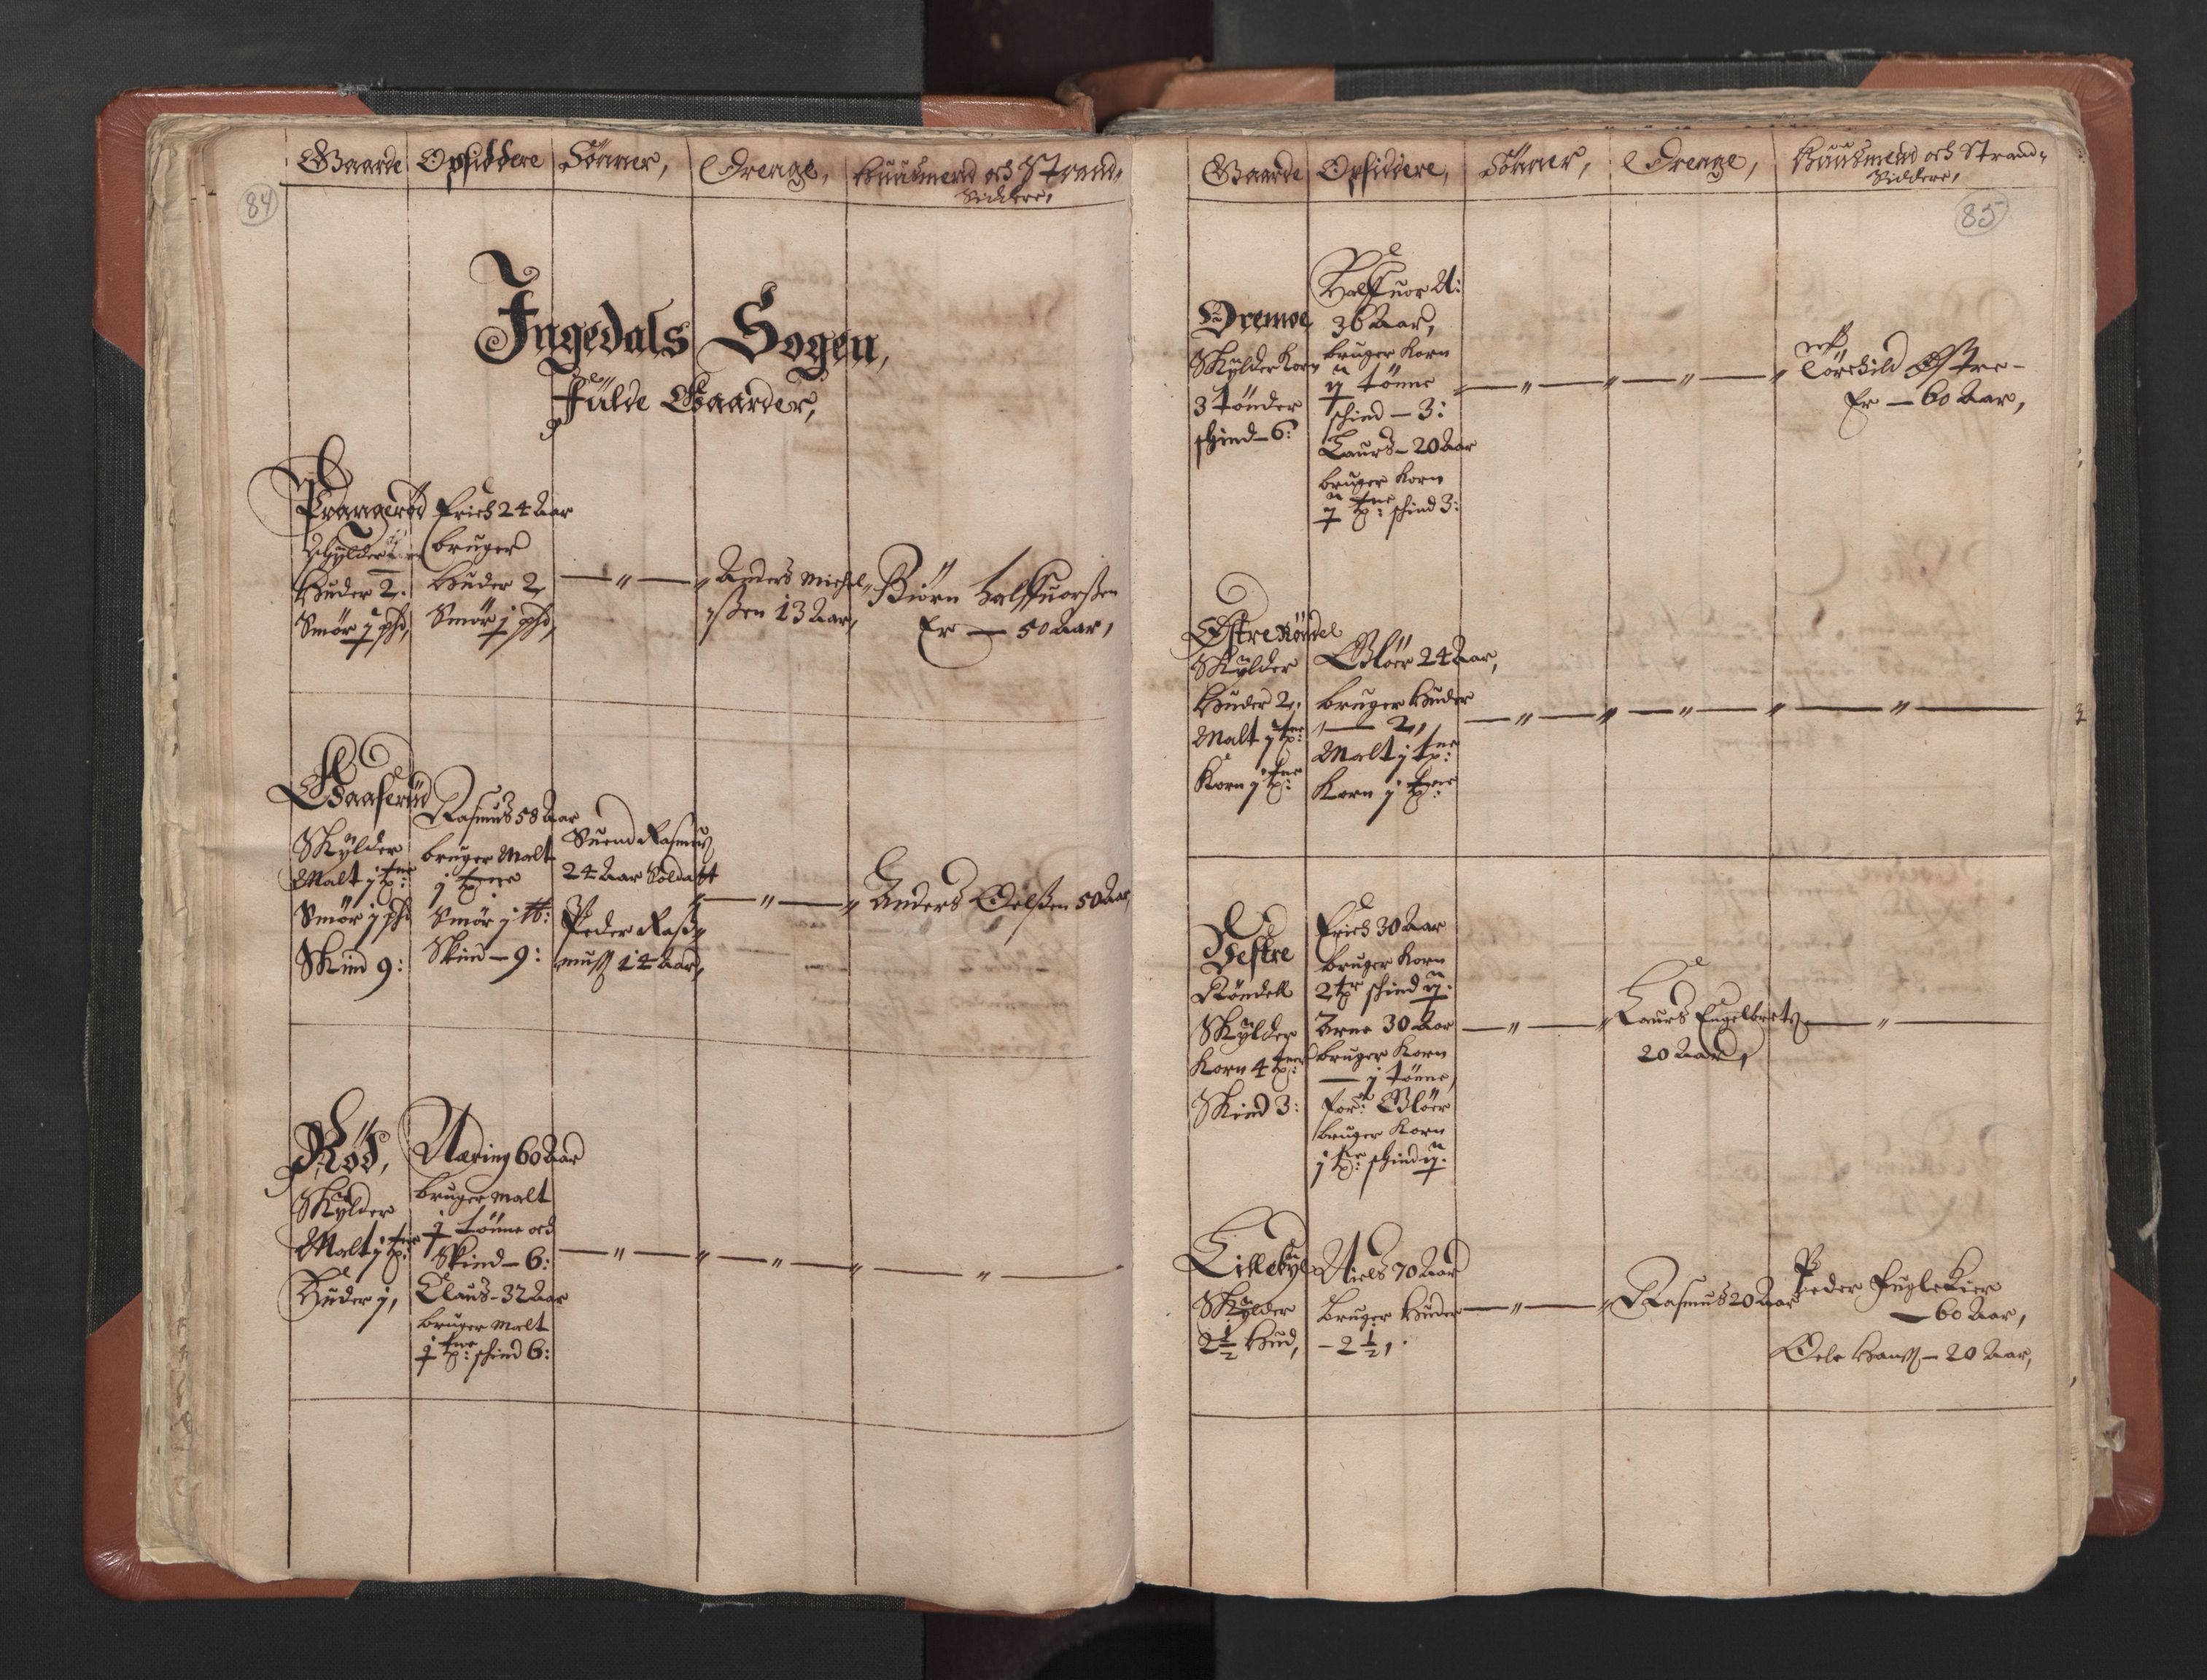 84
Gaarde Opsiddere Sönner, Drenge, Huusmend och Strand-
Siddere,
Ingedals Sogen,
Fülde Gaarder,
Prangerød
Schylder
Huder 2.
Smör j phd,
Erich 24 Aar
bruger
Huder 2
Smör j phd,
Anders Michel-
ßen 13 Aar,
Biörn Halffuorßen
Er — 50 Aar,
Gaaserüd
Skylder
Malt j tne:
Smör j phd
Skind 9:
Rasmus 58 Aar
bruger Malt
j tne
Smör j
Skind – 9:
Suend Rasmus
24 Aar Soldatt
Peder Raß-
muß 14 Aar,
Anders Oelßen 50 Aar,
Rød,
Skylder
Malt j tne:
Huder j,
Næring 60 Aar
bruger malt
tönne och
Skind – 6:
Claus – 32 Aar
bruger Malt
tne: schind 6:
85
Gaarde Opsiddere, Sönner, Drenge, Huusmend och Strand-
Siddere,
Dremoe
Skylder Korn
3 tönder
schind – 6:
Halffuor A:
36 Aar,
bruger Korn
tönne
schind – 3:
Laurs – 20 Aar
bruger Korn
tne: schind 3:
Törchild Østre –
Er — 60 Aar,
Østre Röndel
Skylder
Huder 2.
Malt j tne:
Korn j tne:
Glöer 24 Aar,
bruger Huder
— 2,
Malt j tne:
Korn j tne:
Vestre
Röndell
Skylder
Korn 4 tner:
Skind 3:
Erich 30 Aar
bruger Korn
2 tr schind
Arne 30 Aar
bruger Korn
— j tönne,
for: Glöer
bruger Korn
j tne: schind
Laurs Engelbretß
20 Aar,
Lillebye
Skylder
2½ Hud,
Niels 70 Aar
bruger Huder
– 2½,
Rasmus 20 Aar
Peder Fuglekier
— 60 Aar,
Oele Hanß – 20 Aar,